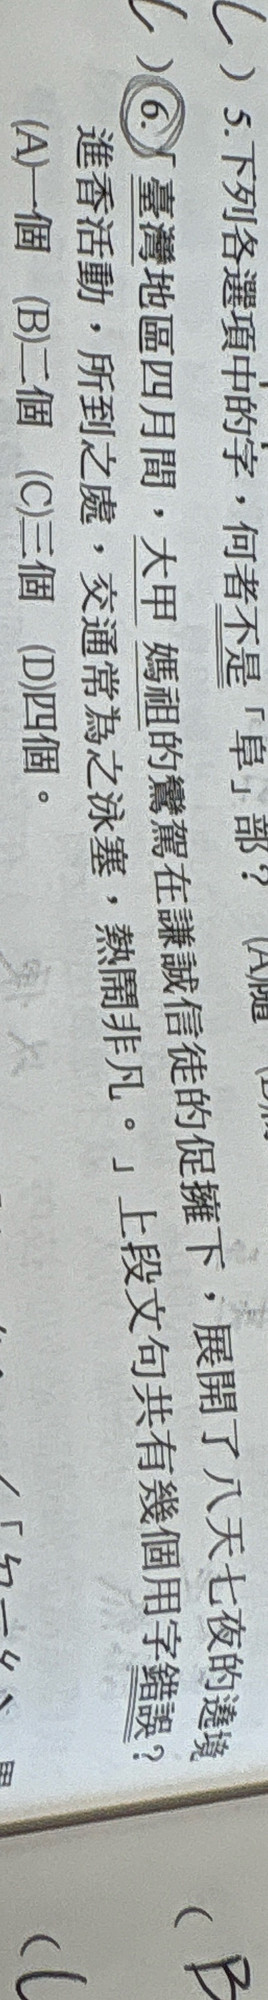 ( ) 5.下列各選項中的字，何者不是「阜」部？ (A)隨
( ) 6.「臺灣地區四月間，大甲 媽祖的鸞駕在謙誠信徒的促擁下，展開了八天七夜的遶境
進香活動，所到之處，交通常為之泳塞，熱鬧非凡。」上段文句共有幾個用字錯誤？
(A)一個 (B)二個 (C)三個 (D)四個。
( B